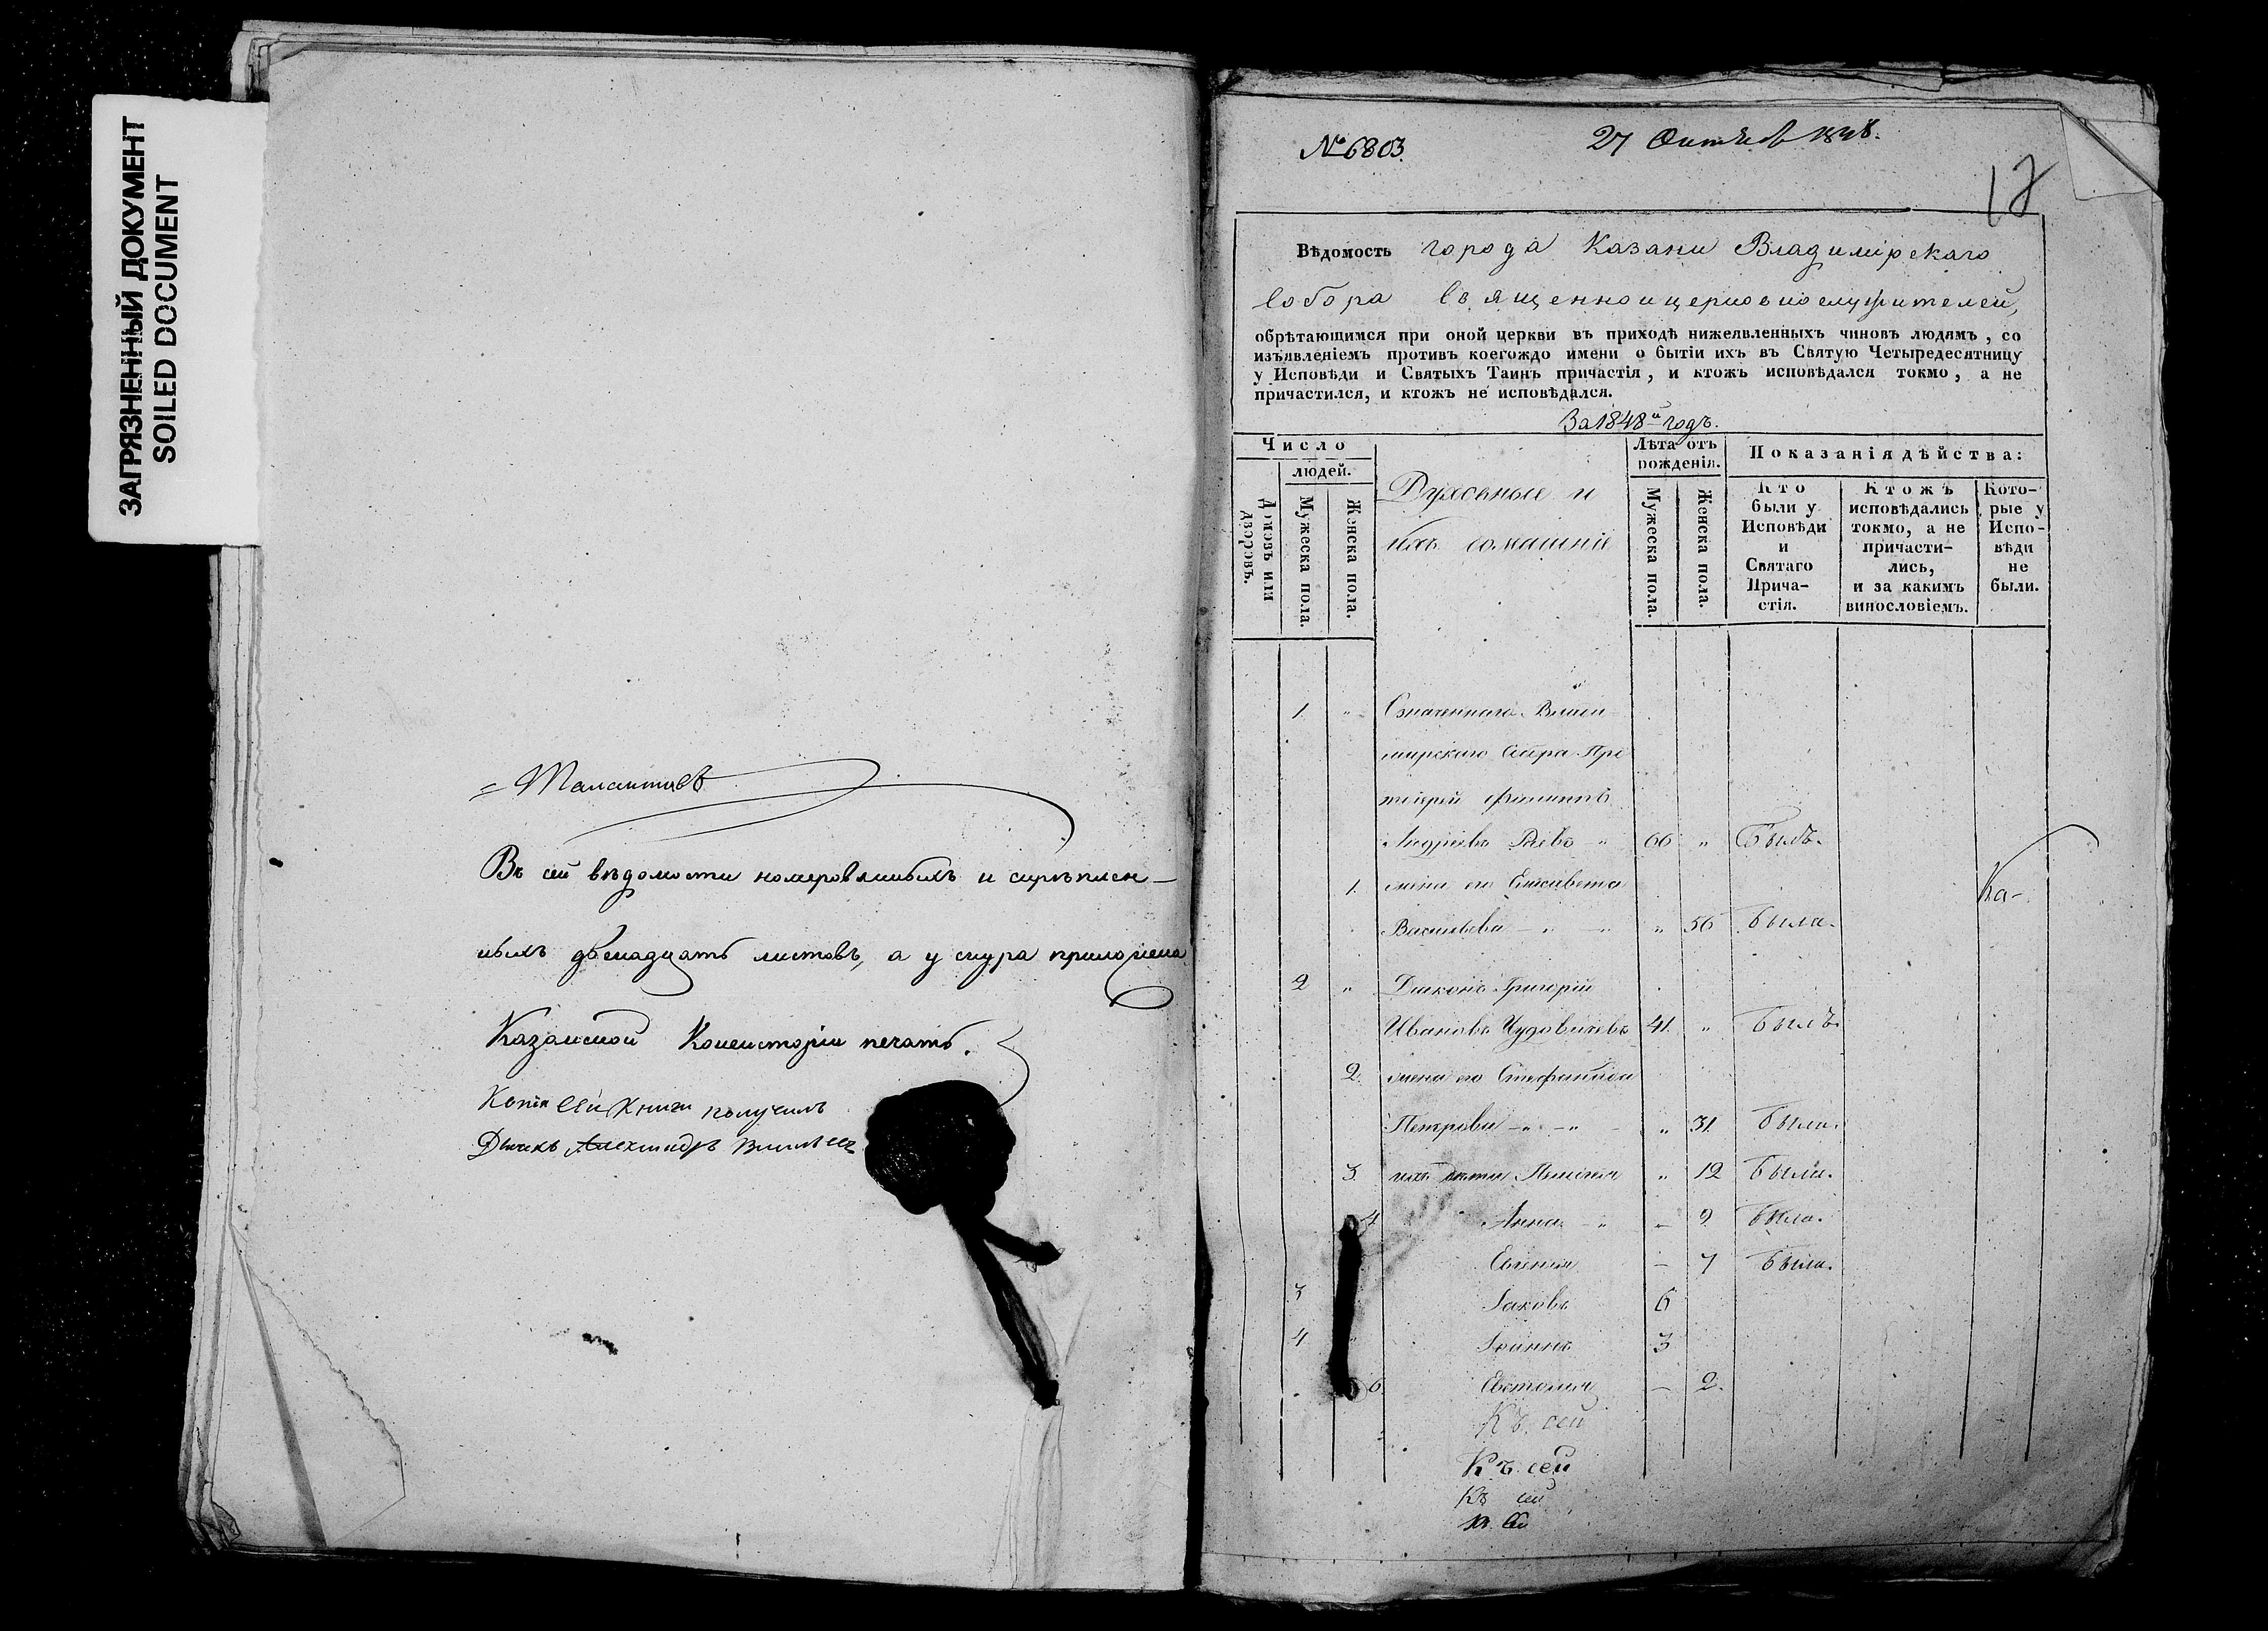 ЗАГРЯЗНЕННЫЙ ДОКУМЕНТ
SOILED DOCUMENT
Въ сей вѣдомости номерованныхъ и скрѣплен-
ныхъ двенадцать листовъ, а у снура приложена
Казанской Консисторіи печать.
Копіи сей книги получилъ
№ 6803.
27 Октября 1848.
Вѣдомость города Казани Владимірскаго
собора священно и церковнослужителей,
обрѣтающимся при оной церкви въ приходѣ нижеявленныхъ чиновъ людямъ, со
изъявленіемъ противъ коегождо имени о бытіи ихъ въ Святую Четыредесятницу
у Исповѣди и Святыхъ Таинъ причастія, и ктожъ исповѣдался токмо, а не
причастился, и ктожъ не исповѣдался.
За 1848й годъ.
Число
людей.
Домовъ или дворовъ.
Мужеска пола.
Женска пола.
Духовные и
ихъ домашніе
Лѣта отъ
рожденія.
Мужеска пола.
Женска пола.
Показанія дѣйства:
Кто
были у
Исповѣди
и
Святаго
Прича-
стія.
Ктожъ
исповѣдались
токмо, а не
причасти-
лись,
и за какимъ
винословіемъ.
Кото-
рые у
Испо-
вѣди
не
были.
1 " Означеннаго Влади
мирскаго Собора Про
тоіерей Филиппъ
Андреевъ 66 " Былъ.
1. жена его Елисавета
Васильева " 56 Была.
Ка-
2 " Діаконъ Григорій
Ивановъ Чудовичевъ 41. " Былъ.
2. жена его Стефанида
Петрова " 31 Была.
3. ихъ дѣти " 12 Была.
4 Анна - 9 Была.
Евгенія - 7 Была.
3 Іаковъ 6
4 Іоаннъ 3
6 Евстолія - 2.
Къ сей
Къ сей
Къ сей